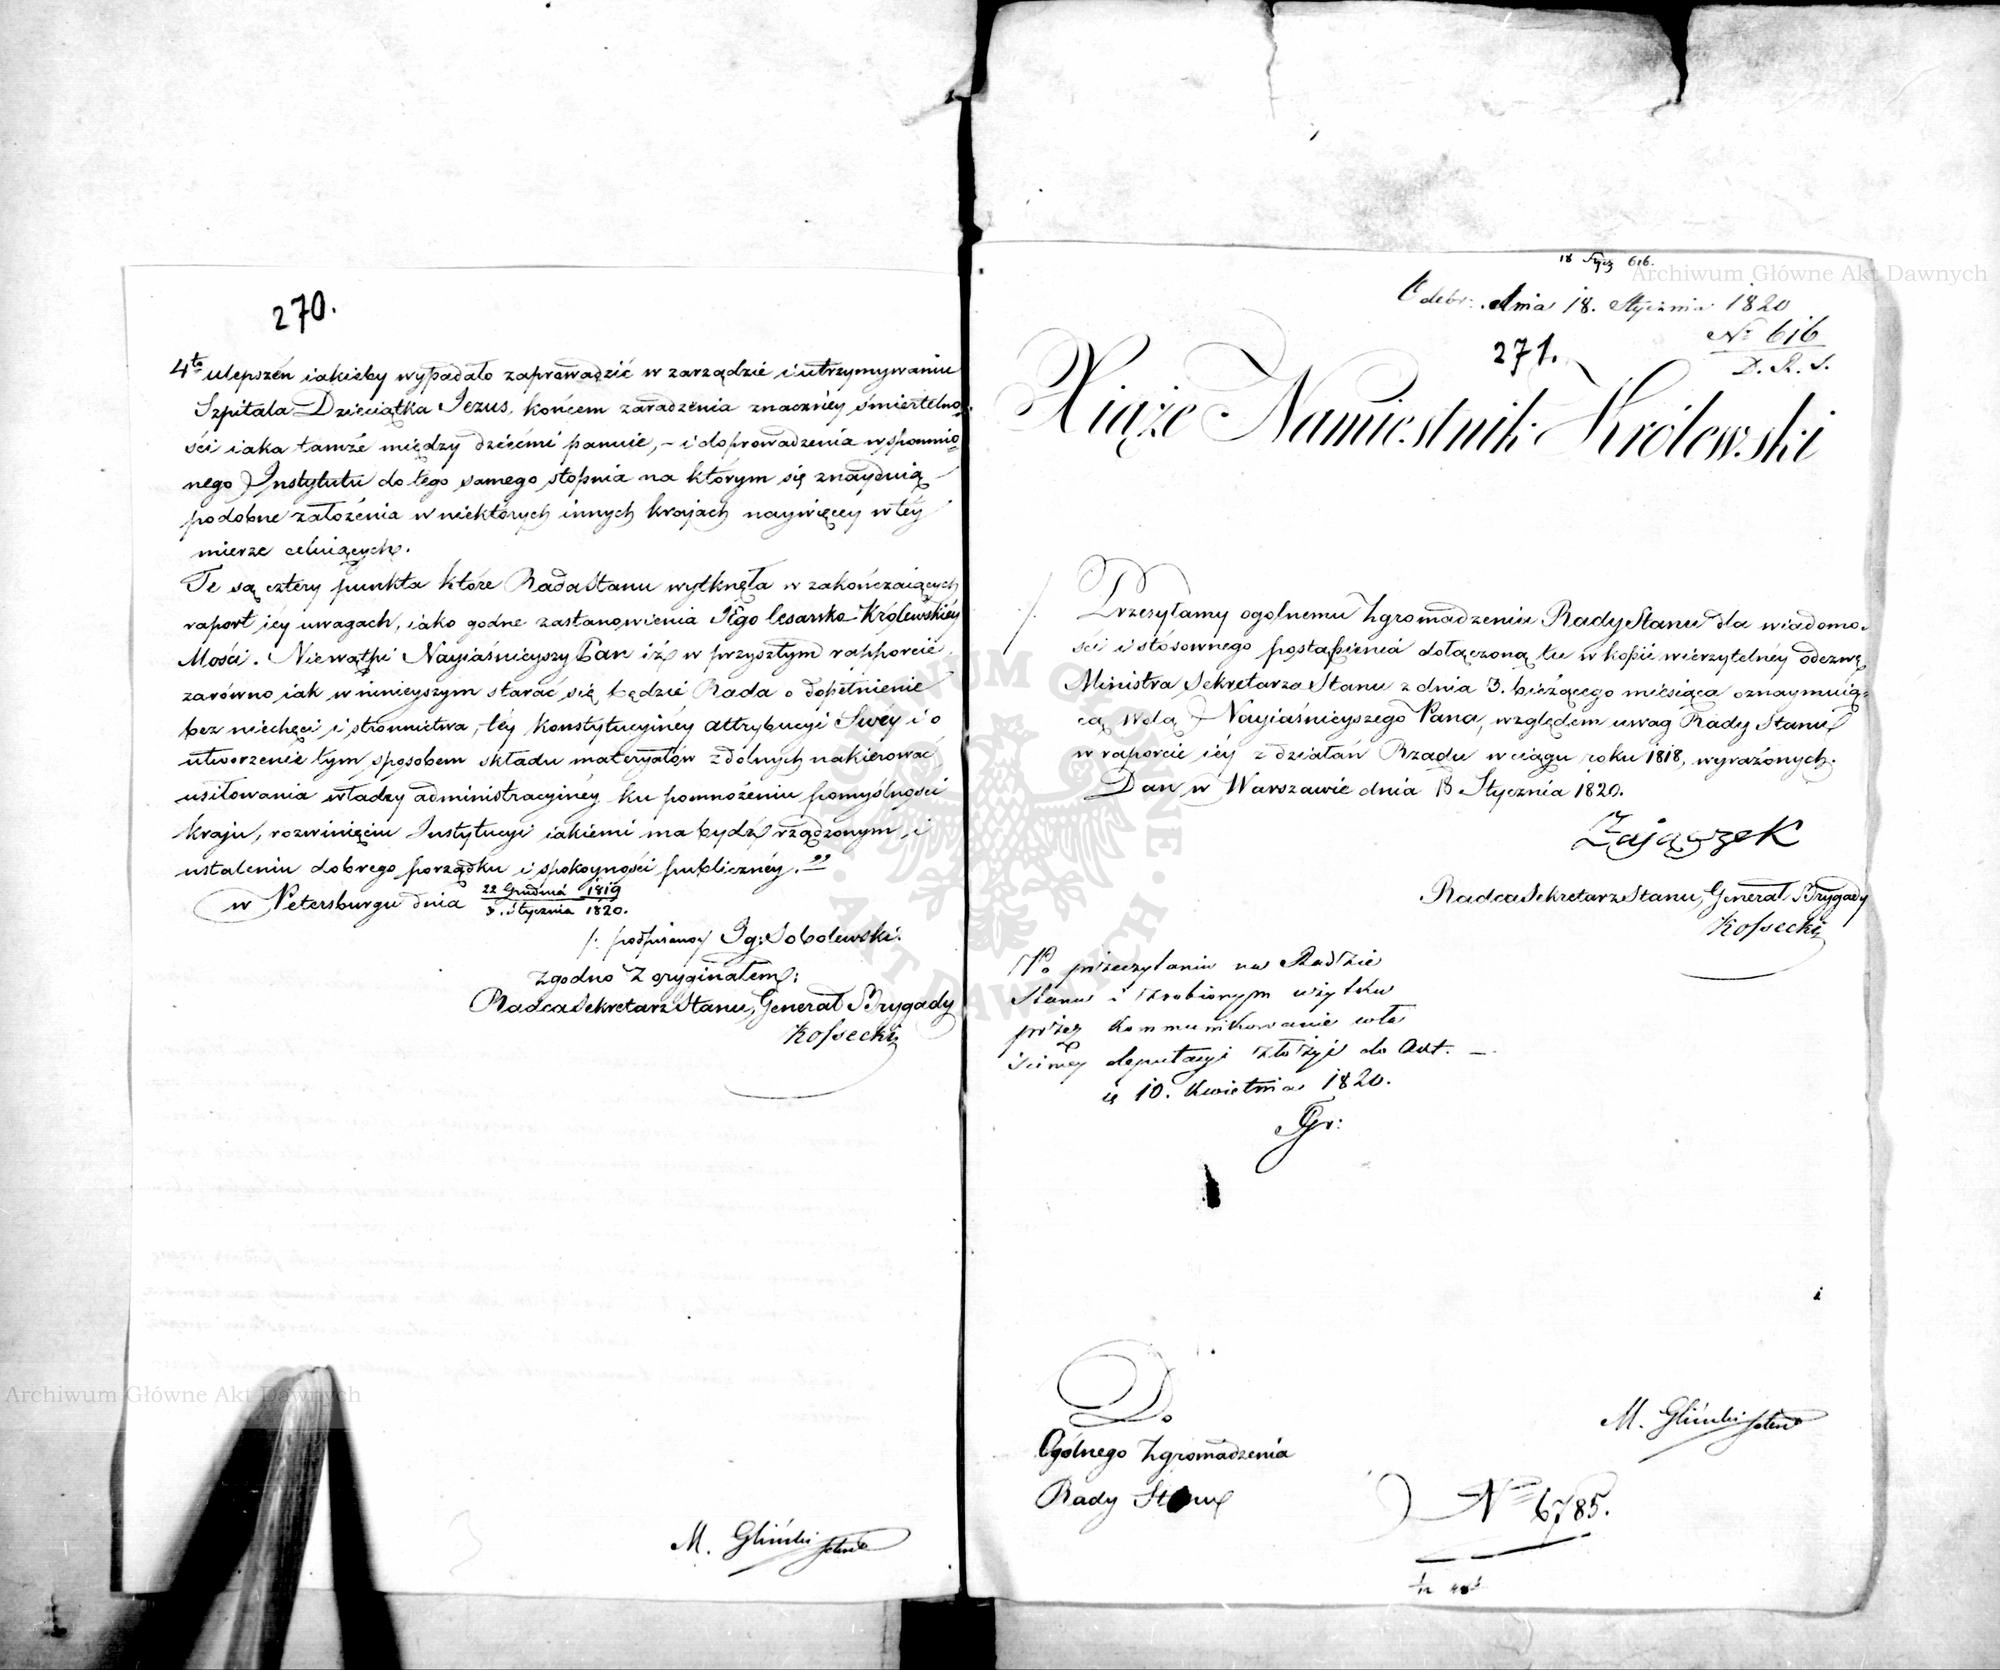 270.
4to ulepszeń iakieby wypadało zaprowadzić w zarządzie i utrzymywaniu
Szpitala Dzieciątka Jezus, końcem zaradzenia znaczney śmiertelno-
ści iaka tamże między dziećmi panuie, - i doprowadzenia wspomnio-
nego Instytutu do tego samego stopnia na którym się znayduią
podobne założenia w niektórych innych krajach naywięcey w téy
mierze celuiących.
Te są cztery punkta które Rada Stanu wytknęła w zakończaiących
raport iéy uwagach, iako godne zastanowienia JEgo Cesarsko Królewskiéy
Mości. Niewątpi Nayiaśnieyszy Pan iż w przyszłym rapporcie
zarówno iak w ninieyszym starać się będzie Rada o dopełnienie
bez niechęci i stronnictwa, téy konstytucyinéy attrybucyi Swéy i o
utworzenie tym sposobem składu materyałów zdólnych nakierować
usiłowania władzy administracyinéy ku pomnożeniu pomyślności
kraju, rozwinięciu Instytucyi iakiemi ma bydź rządzonym, i
ustaleniu dobrego porządku i spokoyności publicznéy."
w Petersburgu dnia 22 Grudnia 1819
3. Stycznia 1820.
/: podpisano/ Ig: Sobolewski.
Zgodno z oryginałem:
Radca Sekretarz Stanu, Generał Brygady
Kossecki
M. Gliński
Archiwum Główne Akt Dawnych
18 Stycz 616.
Archiwum Główne Akt Dawnych
Odebr: dnia 18. Stycznia 1820
No 616
D. R. S.
271.
Xiąże Namiestnik Królewski
Przesyłamy ogolnemu Zgromadzeniu Rady Stanu dla wiadomo-
ści i stósownego postąpienia dołączoną tu w kopii wierzytelnéy odezwę
Ministra Sekretarza Stanu z dnia 3. bieżącego miesiąca oznaymuią-
cą Wolą Nayiaśnieyszego Pana, względem uwag Rady Stanu
w raporcie iéy z działań Rządu w ciągu roku 1818, wyrażonych.
Dan w Warszawie dnia 13 Stycznia 1820.
Zajączek
Radca Sekretarz Stanu, Generał Brygady
Kossecki
Po przeczytaniu na Radzie
Stanu i zrobionym użytku
przez kommunikowanie wła
ściwey deputacyi złożyć do Akt. -
10. Kwietnia 1820.
Gr:
Do
Ogólnego Zgromadzenia
Rady Stanu
M. Gliński
No 6785.
ARCHIWUM GŁÓWNE AKT DAWNYCH